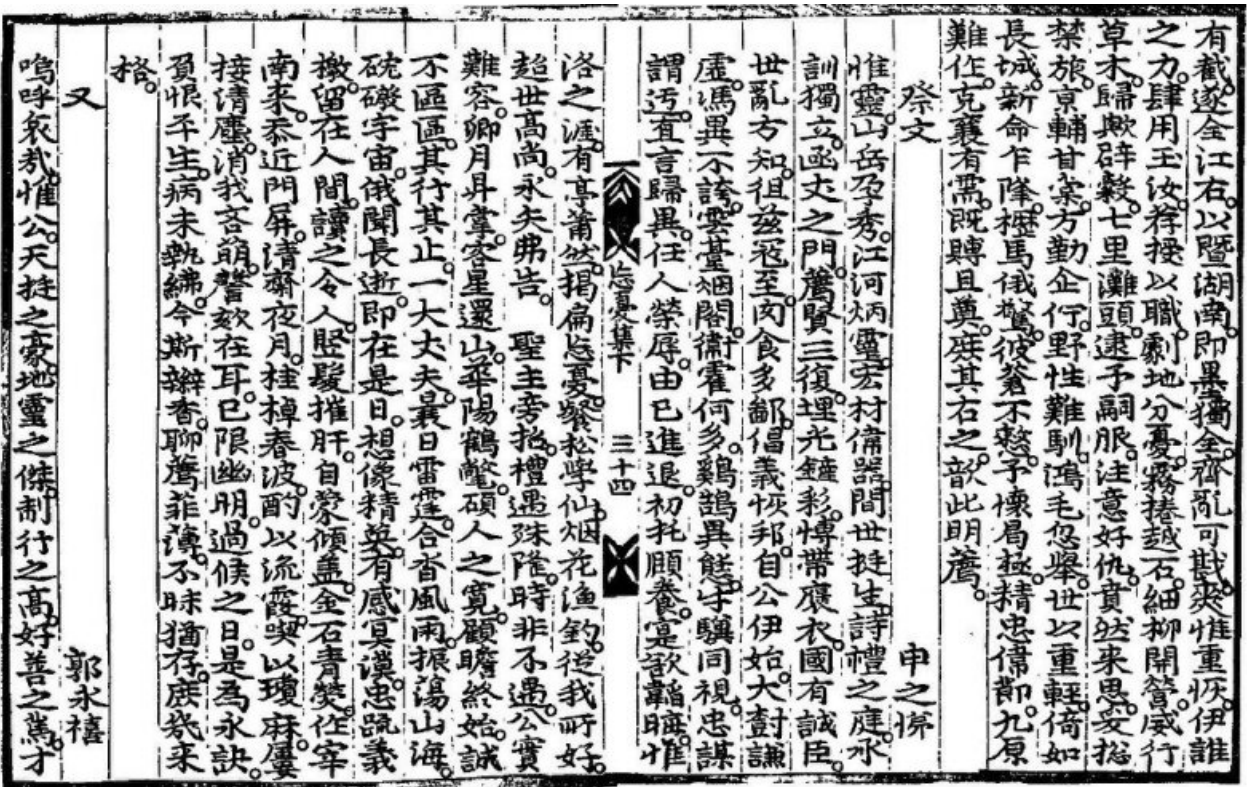 有截。遂全江右。以曁湖南。卽墨獨全。齊亂可戡。爽惟重恢。伊誰
之力。肆用玉汝。荐授以職。劇地分憂。霧捲越石。細柳開營。威行
草木。歸歟辟穀。七里灘頭。逮予嗣服。注意好仇。賁然来思。爰摠
禁旅。京輔甘棠。方勤企佇。野性難馴。鴻毛忽擧。世以重輕。倚如
長城。新命乍降。櫪馬俄驚。彼蒼不憗。予懷曷極。精忠偉節。九原
難作。克襄有需。旣賻且奠。庶其右之。歆此明薦。
祭文 申之悌
惟靈。山岳孕秀。江河炳靈。宏材偉器。間世挺生。詩禮之庭。承
訓獨立。函丈之門。薦賢三復。埋光鏟彩。博帶褒衣。國有誠臣。
世亂方知。徂茲寇至。肉食多鄙。倡義恢邦。自公伊始。大封謙
虛。馮異不誇。雲臺烟閣。衛霍何多。鷄鵠異態。牛驥同視。忠謀
謂迂。直言歸異。任人榮辱。由己進退。初托頤養。寔欲韜晦。惟
忘憂集下 三十四
洛之涯。有亭蕭然。揭扁忘憂。餐松學仙。烟花漁釣。從我所好。
超世高尚。永矢弗告。 聖主旁招。禮遇殊隆。時非不遇。公實
難容。卿月舁掌。客星還山。華陽鶴氅。碩人之寬。顧瞻終始。誠
不區區。其行其止。一大丈夫。曩日雷霆。合沓風雨。振蕩山海。
硡礮宇宙。俄聞長逝。即在是日。想像精英。有感冥漠。忠疏義
檄。留在人間。讀之令人。竪髮摧肝。自蒙傾盖。金石青熒。作宰
南来。忝近門屏。清齋夜月。桂棹春波。酌以流霞。喫以瓊麻。屢
接清塵。消我吝萌。謦欬在耳。已限幽明。過候之日。是為永訣。
負恨平生。病未執紼。今斯瓣香。聊薦菲薄。不昧猶存。庶幾来
格。
又 郭永禧
嗚呼哀哉。惟公。天挺之豪。地靈之傑。制行之高。好善之篤。才